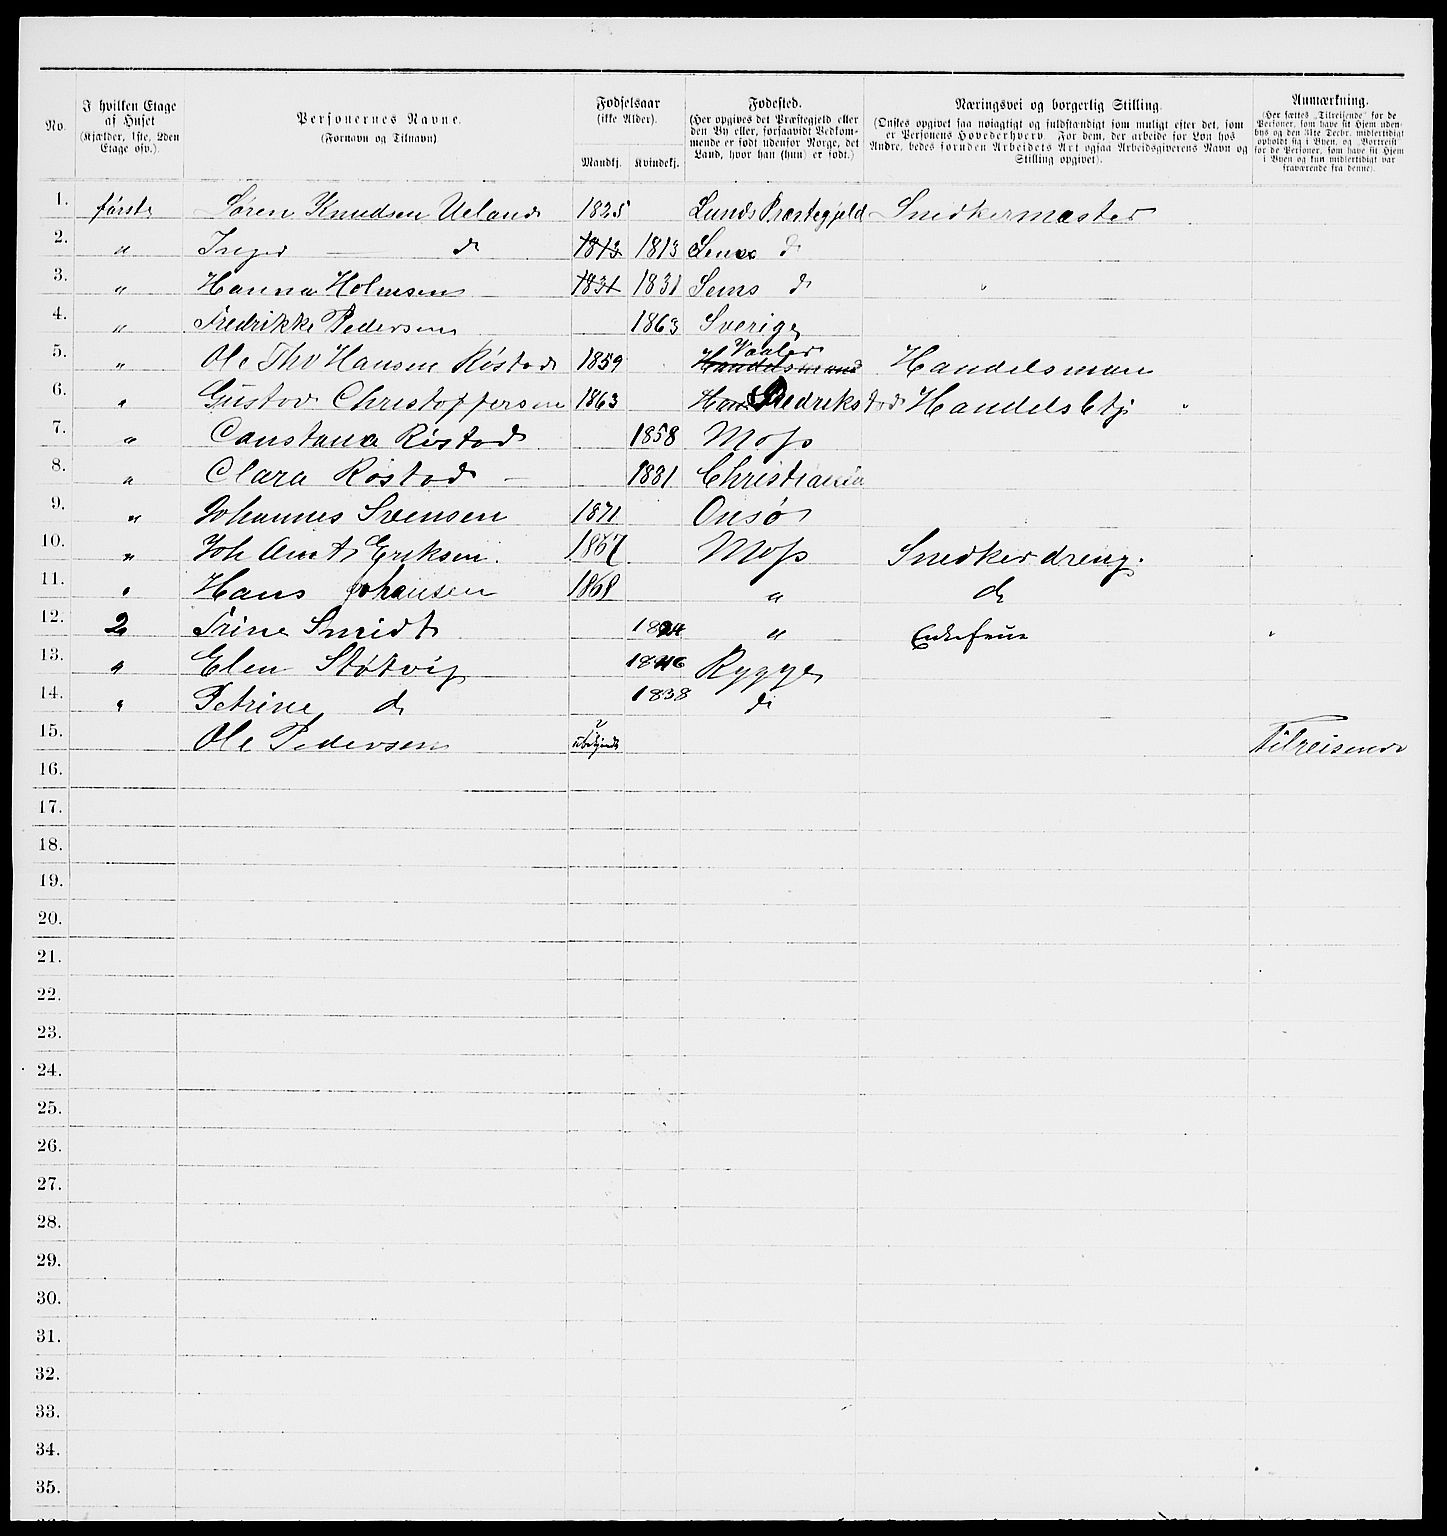 No.
I hvilken Etage af Huset (Kjælder, 1ste, 2den Etage osv.).
Personernes Navne. (Fornavn og Tilnavn)
Fødselsaar (ikke Alder).
Mandkj. Kvindekj.
Fødested. (Her opgives det Præstegjeld eller den By eller, forsaavidt Vedkommende er født udenfor Norge, det Land, hvor han (hun) er født.)
Næringsvei og borgerlig Stilling. (Ønskes opgivet saa nøiagtigt og fuldstændigt som muligt efter det, som er Personens Hovederhverv. For dem, der arbeide for Løn hos Andre, bedes foruden Arbeidets Art ogsaa Arbeidsgiverens Navn og Stilling opgivet).
Anmærkning. (Her sættes „Tilreisende" for de Personer, som have sit Hjem udenbys og den 31te Decbr. midlertidigt opholdt sig i Byen, og „Bortreist" for de Personer, som have sit Hjem i Byen og kun midlertidigt var fraværende fra denne).
1. første Søren Knudsen Ueland 1825 Lunds Præstegjeld Snedkermæster
2. " Inger — do 1813 1813 do
3. " Hanna Holmsen 1831 1831 Sems do
4. " Fredrikke Pedersen 1863 Sverige
5. " Ole Thv Hansen Røstad 1859 Handelsmand Vaaler Handelsman
6. " Gustav Christoffersen 1863 Fredrikstad Handelsbtj
7. " Constance Røstad 1858 Moss
8. " Clara Røstad 1881 Christiania
9. " Johannes Svensen 1871 Onsø
10. " Joh Amt Eriksen. 1867 Moss Snedkerdreng.
11. " Hans Johansen 1868 " do
12. 2 Trine Smidt 1824 " Enkefrue
13. " Elen Støtvig 1846 Rygge
14. " Petrine do 1838 do
15. Ole Pedersen ubekjendt Tilreisende
16.
17.
18.
19.
20.
21.
22.
23.
24.
25.
26.
27.
28.
29.
30.
31.
32.
33.
34.
35.